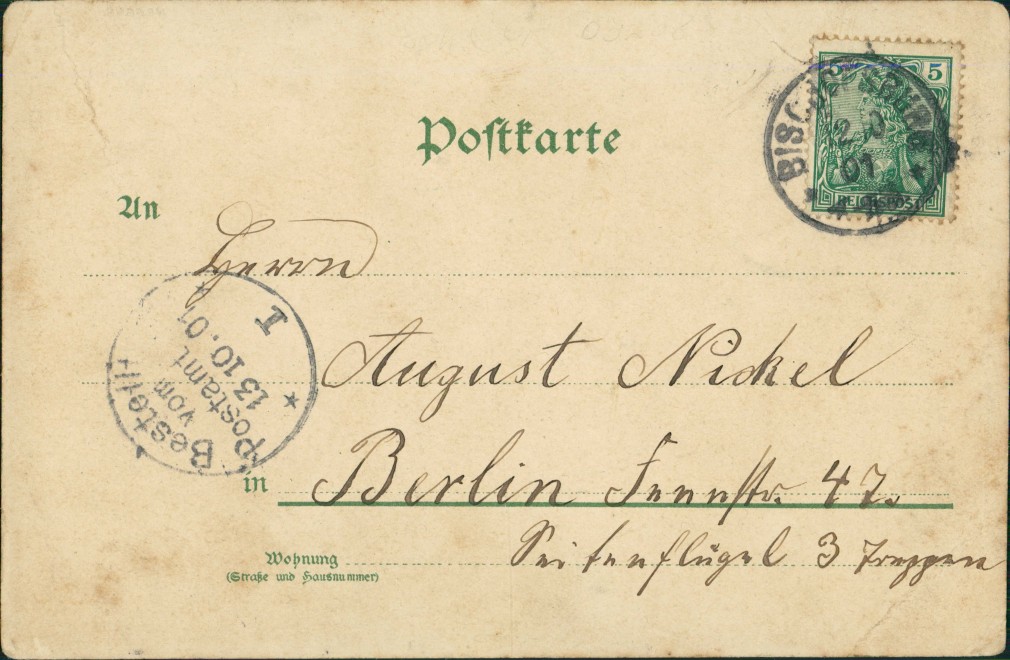 Postkarte
5 5
REICHSPOST
01
An
Herrn
August Nickel
in Berlin Fennstr. 47.
Wohnung
(Straße und Hausnummer)
Seitenflügel 3 Treppen
Bestellt
vom
Postamt
13 10. 01
I